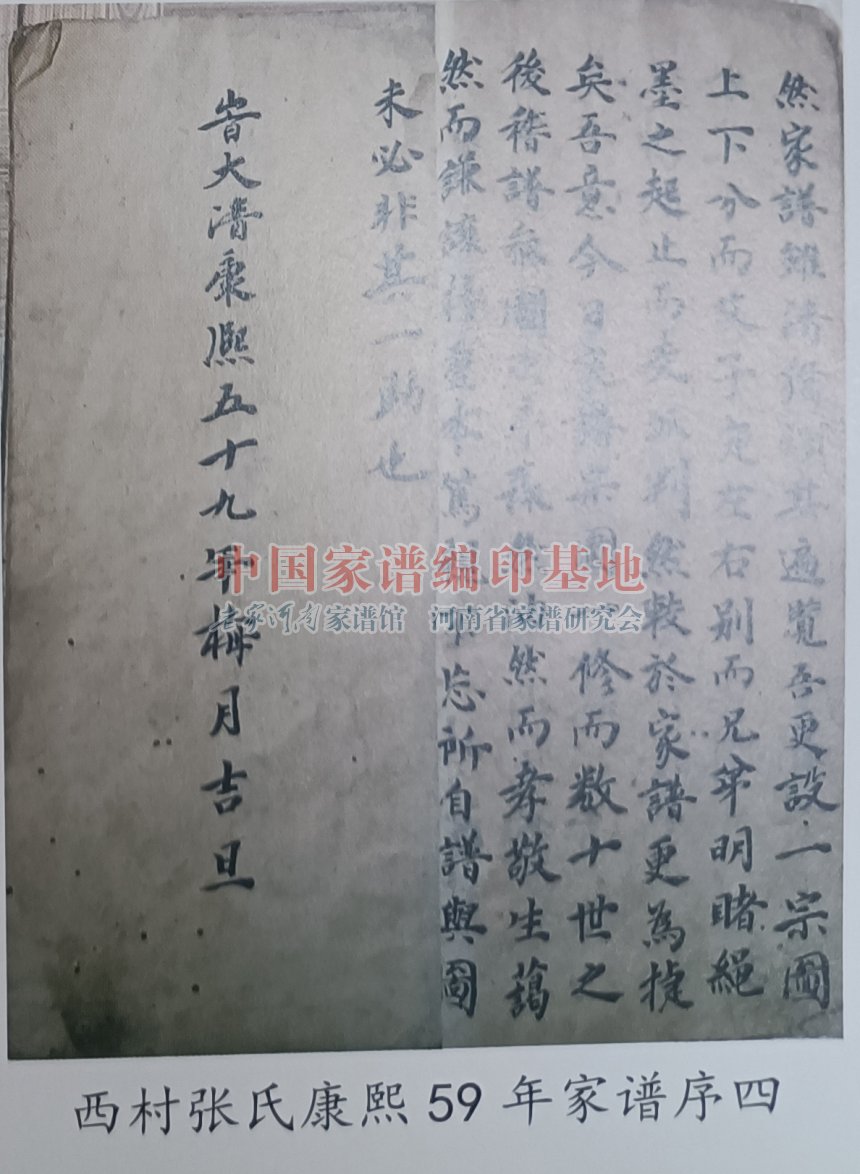 然家譜雖済偹須其遍覧吾更設一宗圖
上下分而父子定左右別而兄弟明睹繩
墨之起止而支派判然較於家譜更為捷
矣吾意今日家譜宗圖修而数十世之
後稽譜稽圖然而孝敬生藹
然而謙讓篤忘所自譜與圖
未必非其一助也
旹大清康熈五十九年梅月吉旦
中国家谱编印基地
家谱馆 河南省家谱研究会
西村张氏康熙59年家谱序四